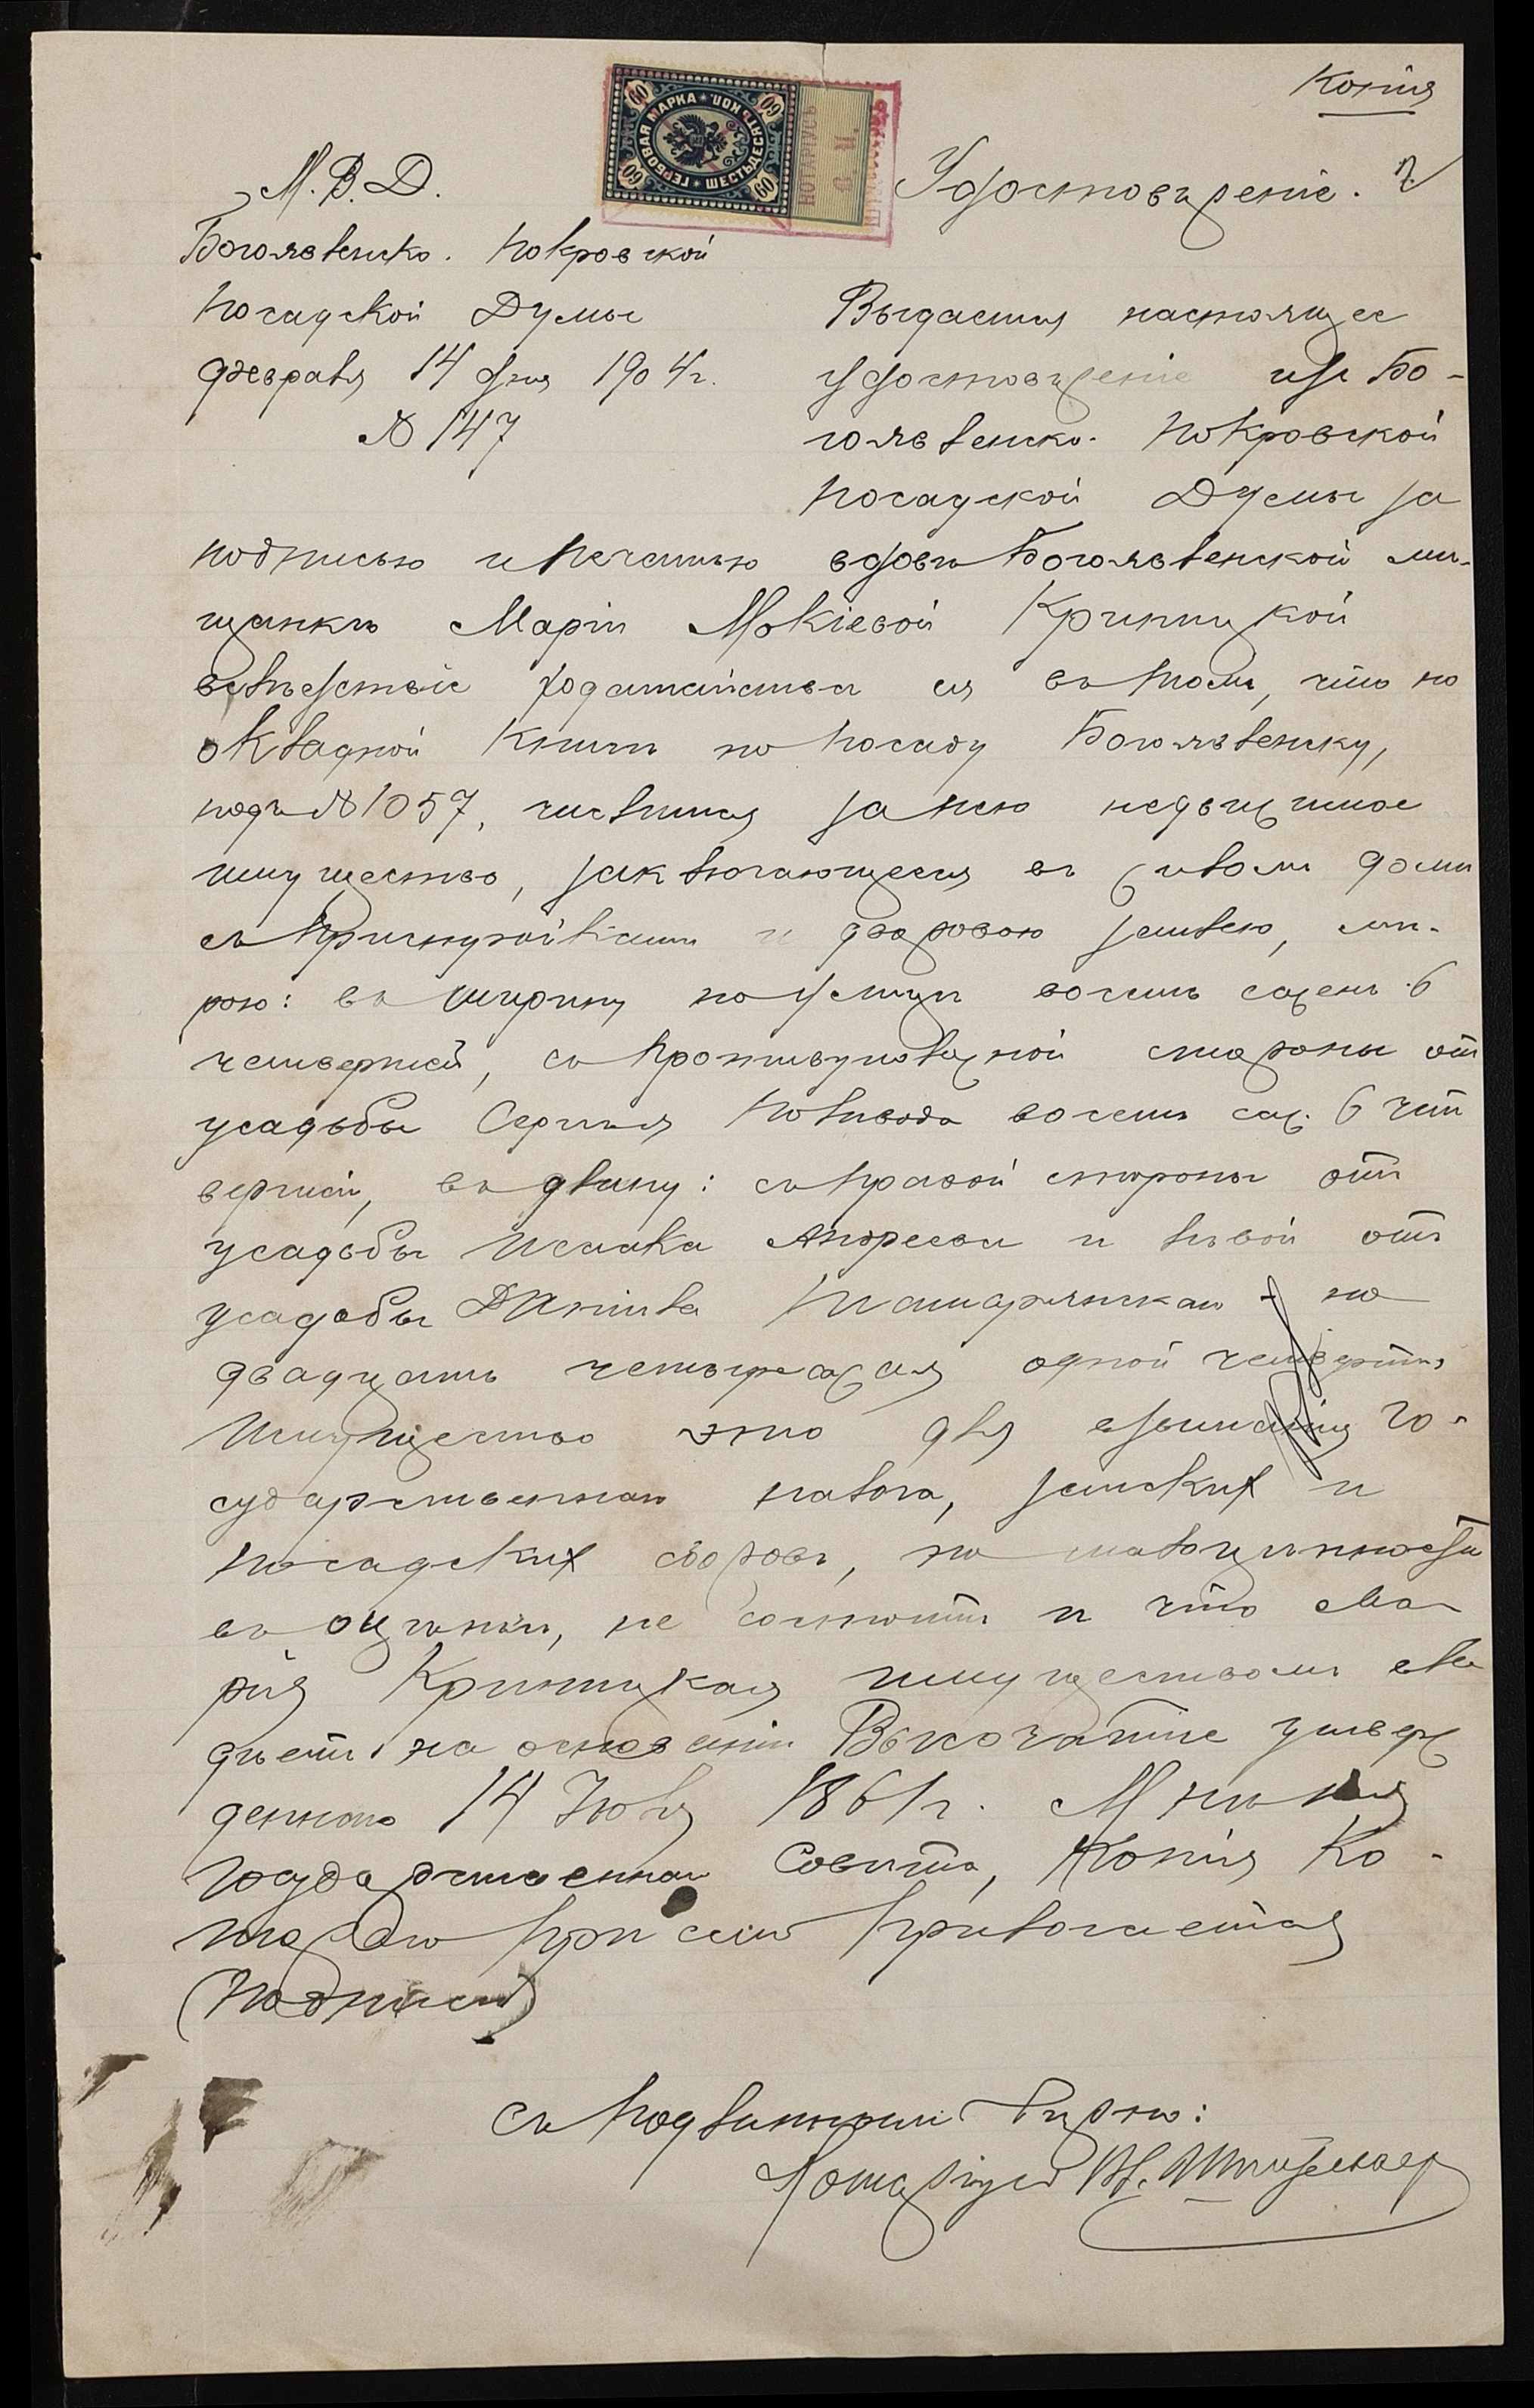 Копія
ГЕРБОВАЯ МАРКА
ШЕСТЬДЕСЯТЪ КОП.
60 60 60 60
М. В. Д.
Удостовѣреніе.
Богоявленско-Покровской
Посадской Думы
Февраля 14 дня 1904 г.
№ 147
Выдается настоящее
удостовѣреніе изъ Бо-
гоявленско-Покровской
Посадской Думы за
подписью и печатью вдовѣ Богоявленской мѣ-
щанкѣ Маріи Мокіевой Криницкой
вслѣдствіе ходатайства ея въ томъ, что по
окладной книгѣ по посаду Богоявленску,
подъ № 1057, числится за нею недвижимое
имущество, заключающееся въ жиломъ домѣ
съ пристройками и дворовою землею, мѣ-
рою: въ ширину по улицѣ восемь сажень 6
четвертей, съ противуположной стороны отъ
усадьбы Сергѣя восемь саж. 6 чет
вертей, въ длину: съ правой стороны отъ
усадьбы Исаака Андреева и лѣвой отъ
усадьбы Даніила по
двадцать четыре саж. съ одной четвертью
Имущество это для взиманія Го-
сударственнаго налога, земскихъ и
посадскихъ сборовъ, по малоцѣнности
въ оцѣнкѣ, не состоитъ и что Ма-
рія Криницкая имуществомъ вла
дѣетъ на основаніи Высочайше утверж
деннаго 14 Іюля 1861 г. Мнѣнія
Государственнаго Совѣта, Копія ко-
тораго при семъ прилагается
(Подписи)
Съ подлиннымъ вѣрно:
Нотаріусъ